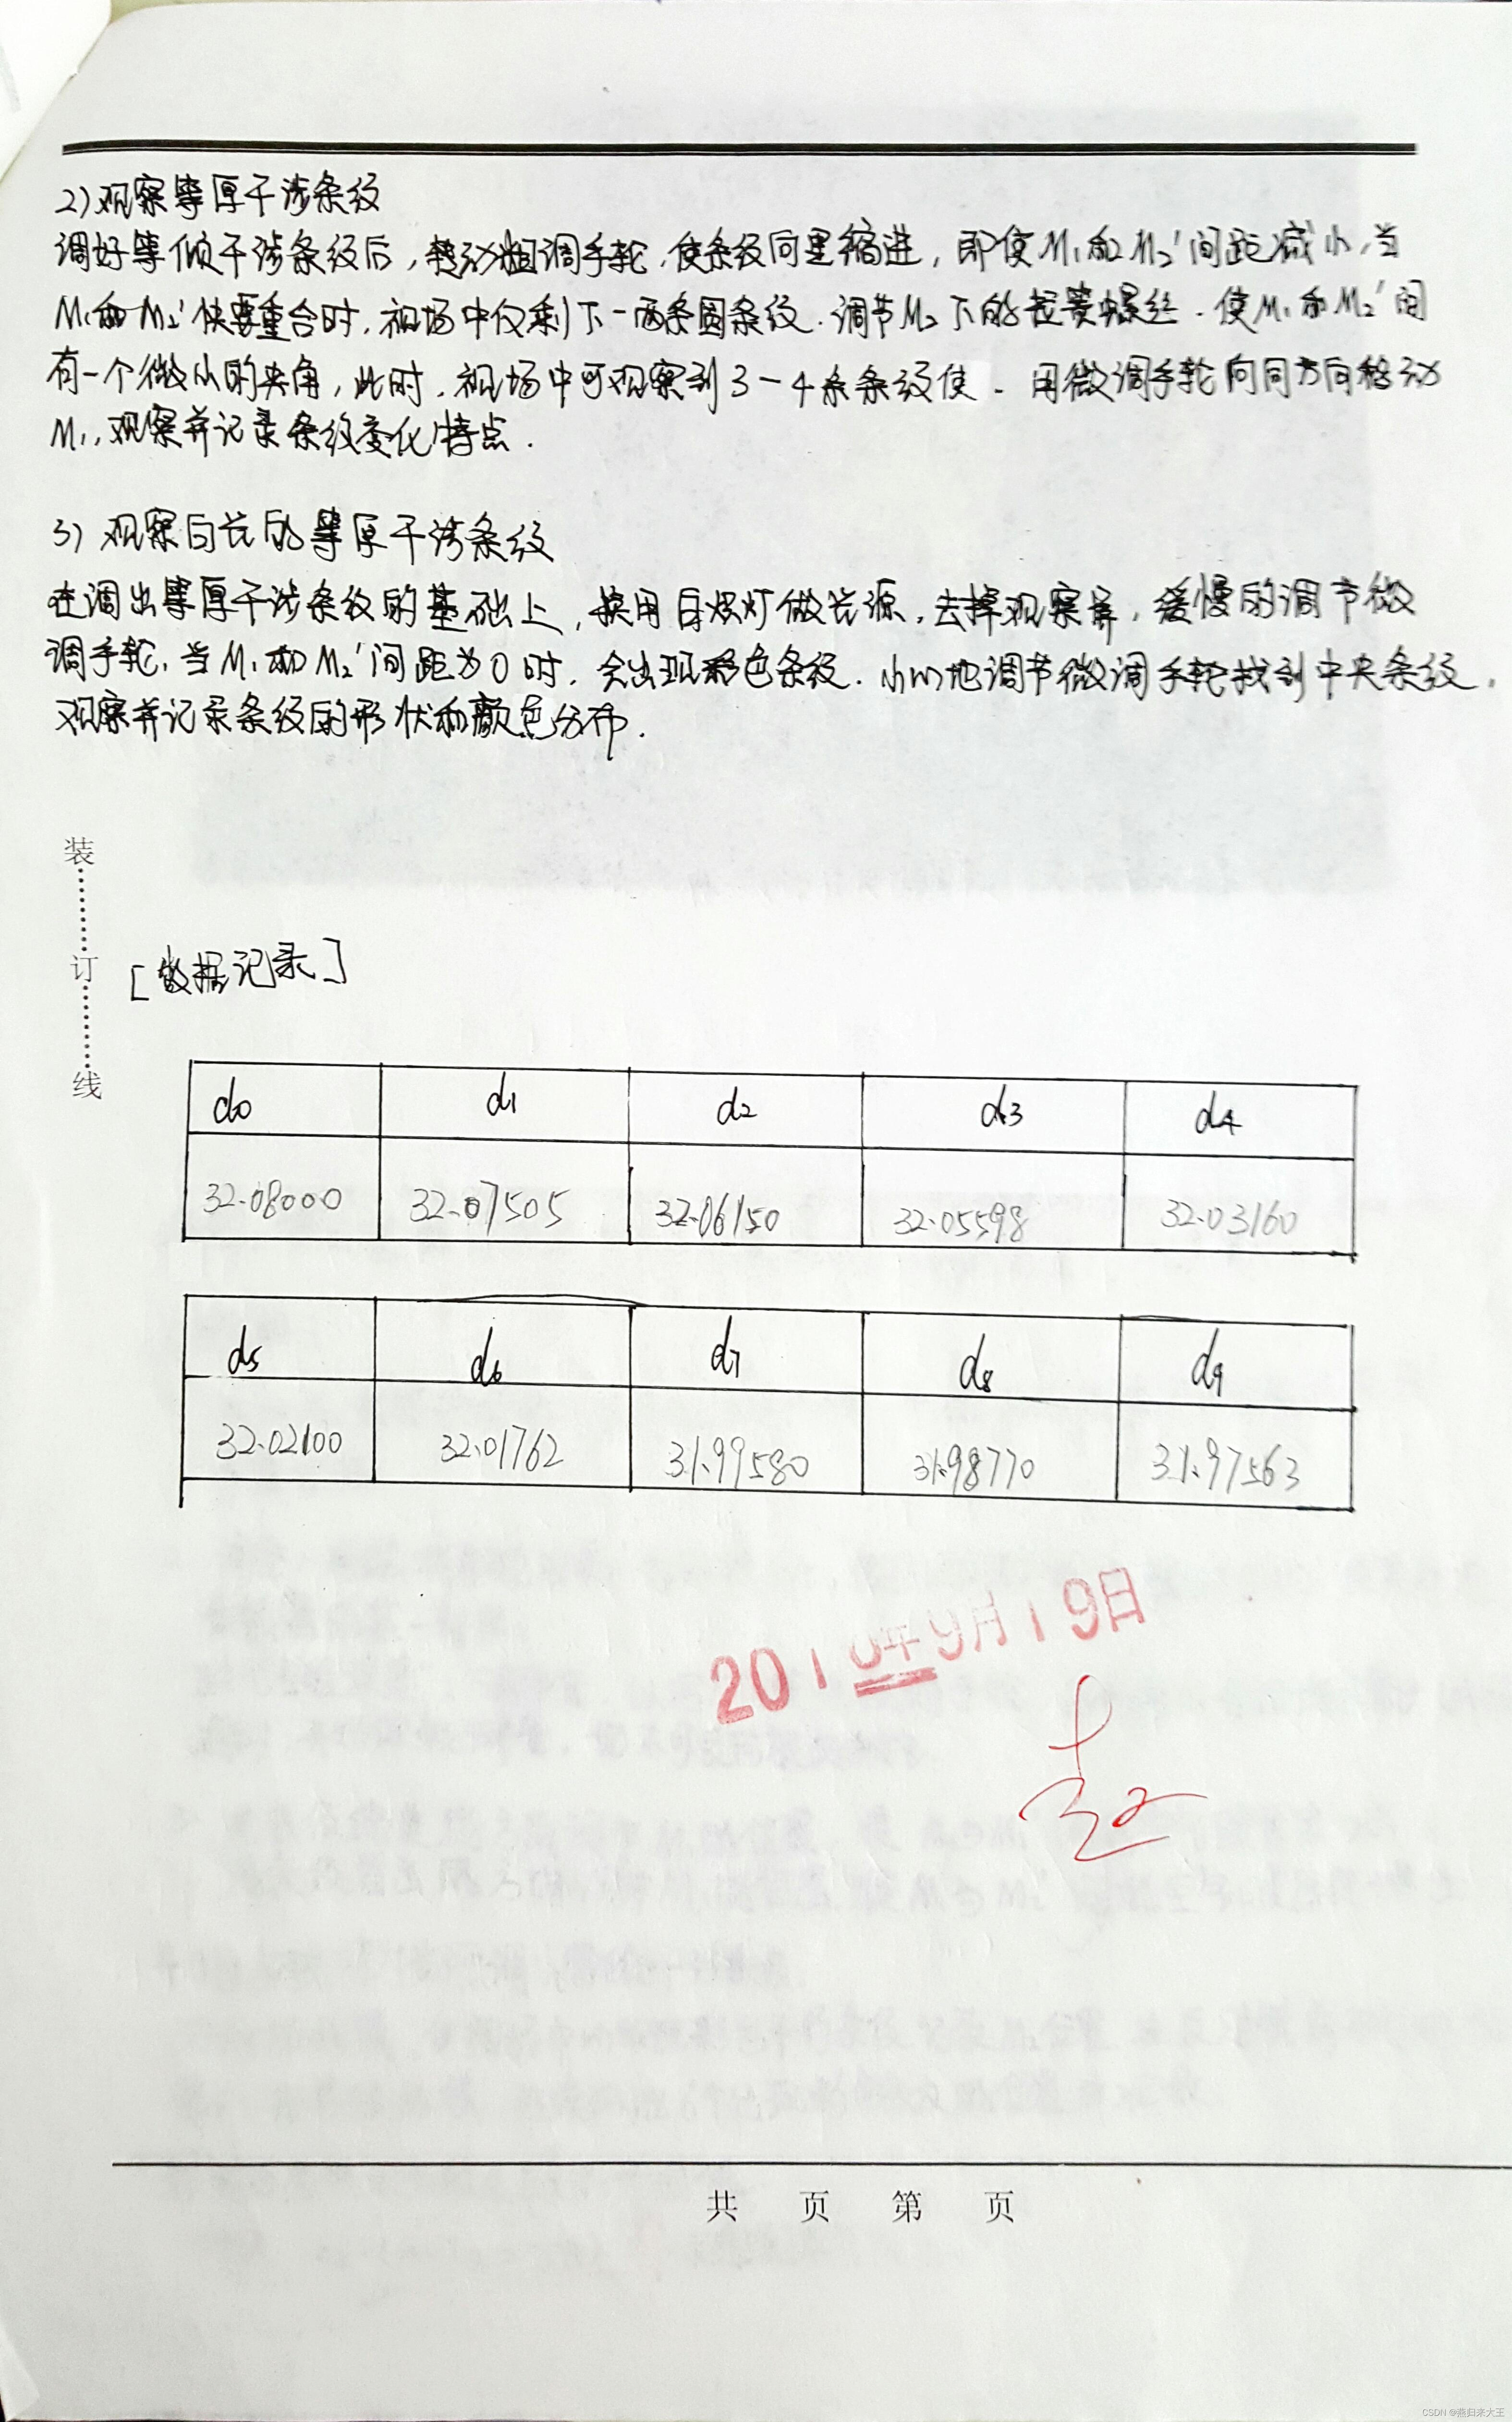 2) 观察等厚干涉条纹
调好等倾干涉条纹后，转动粗调手轮，使条纹向里缩进，即使M₁和M₂′间距减小，当
M₁和M₂′快要重合时，视场中仅剩下一两条圆条纹．调节M₂下的拉簧螺丝．使M₁和M₂′间
有一个微小的夹角，此时，视场中可观察到3-4条条纹使．用微调手轮向同方向移动
M₁，观察并记录条纹变化特点．
3) 观察白光的等厚干涉条纹
在调出等厚干涉条纹的基础上，换用白炽灯做光源，去掉观察屏，缓慢的调节微
调手轮，当M₁和M₂′间距为0时，会出现彩色条纹．小心地调节微调手轮找到中央条纹，
观察并记录条纹的形状和颜色分布．
装
订
线
[数据记录]
d₀ d₁ d₂ d₃ d₄
32.08000 32.07505 32.06150 32.05598 32.03160
d₅ d₆ d₇ d₈ d₉
32.02100 32.01762 31.99580 31.98770 31.97563
年9月19日
共 页 第 页
CSDN @燕归来大王